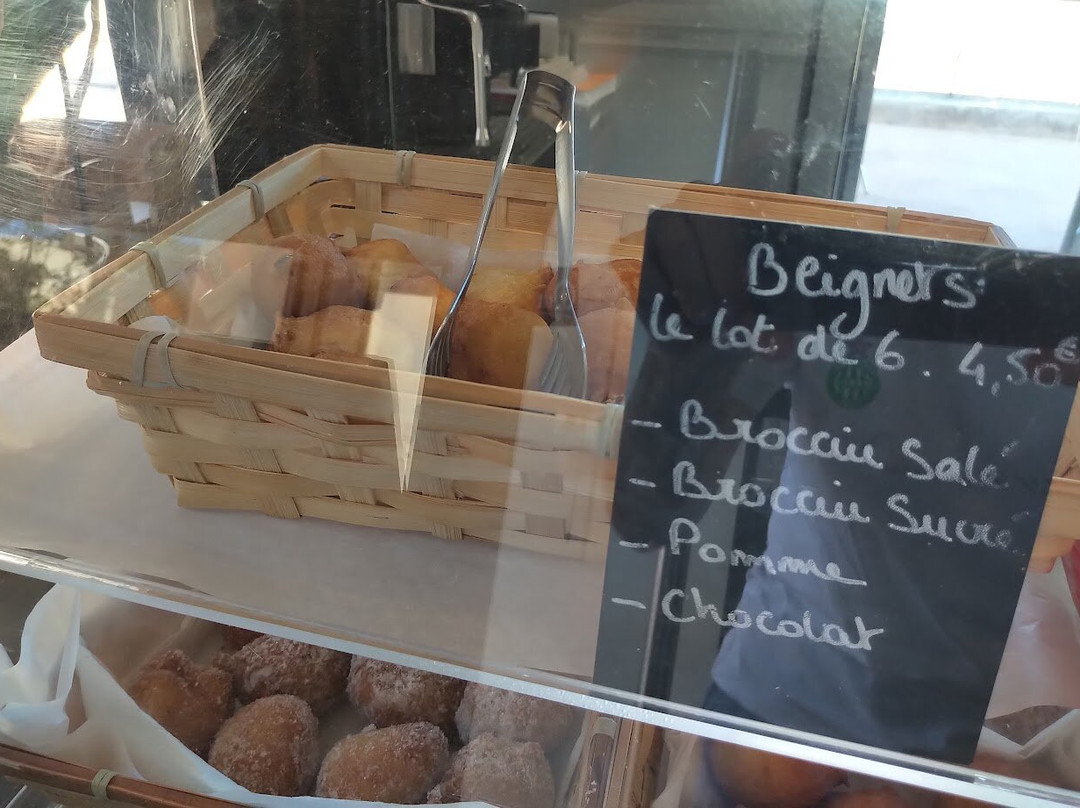 Beignets
le lot de 6. 4,50€
- Brocciu Salé
- Brocciu Sucré
- Pomme
- Chocolat